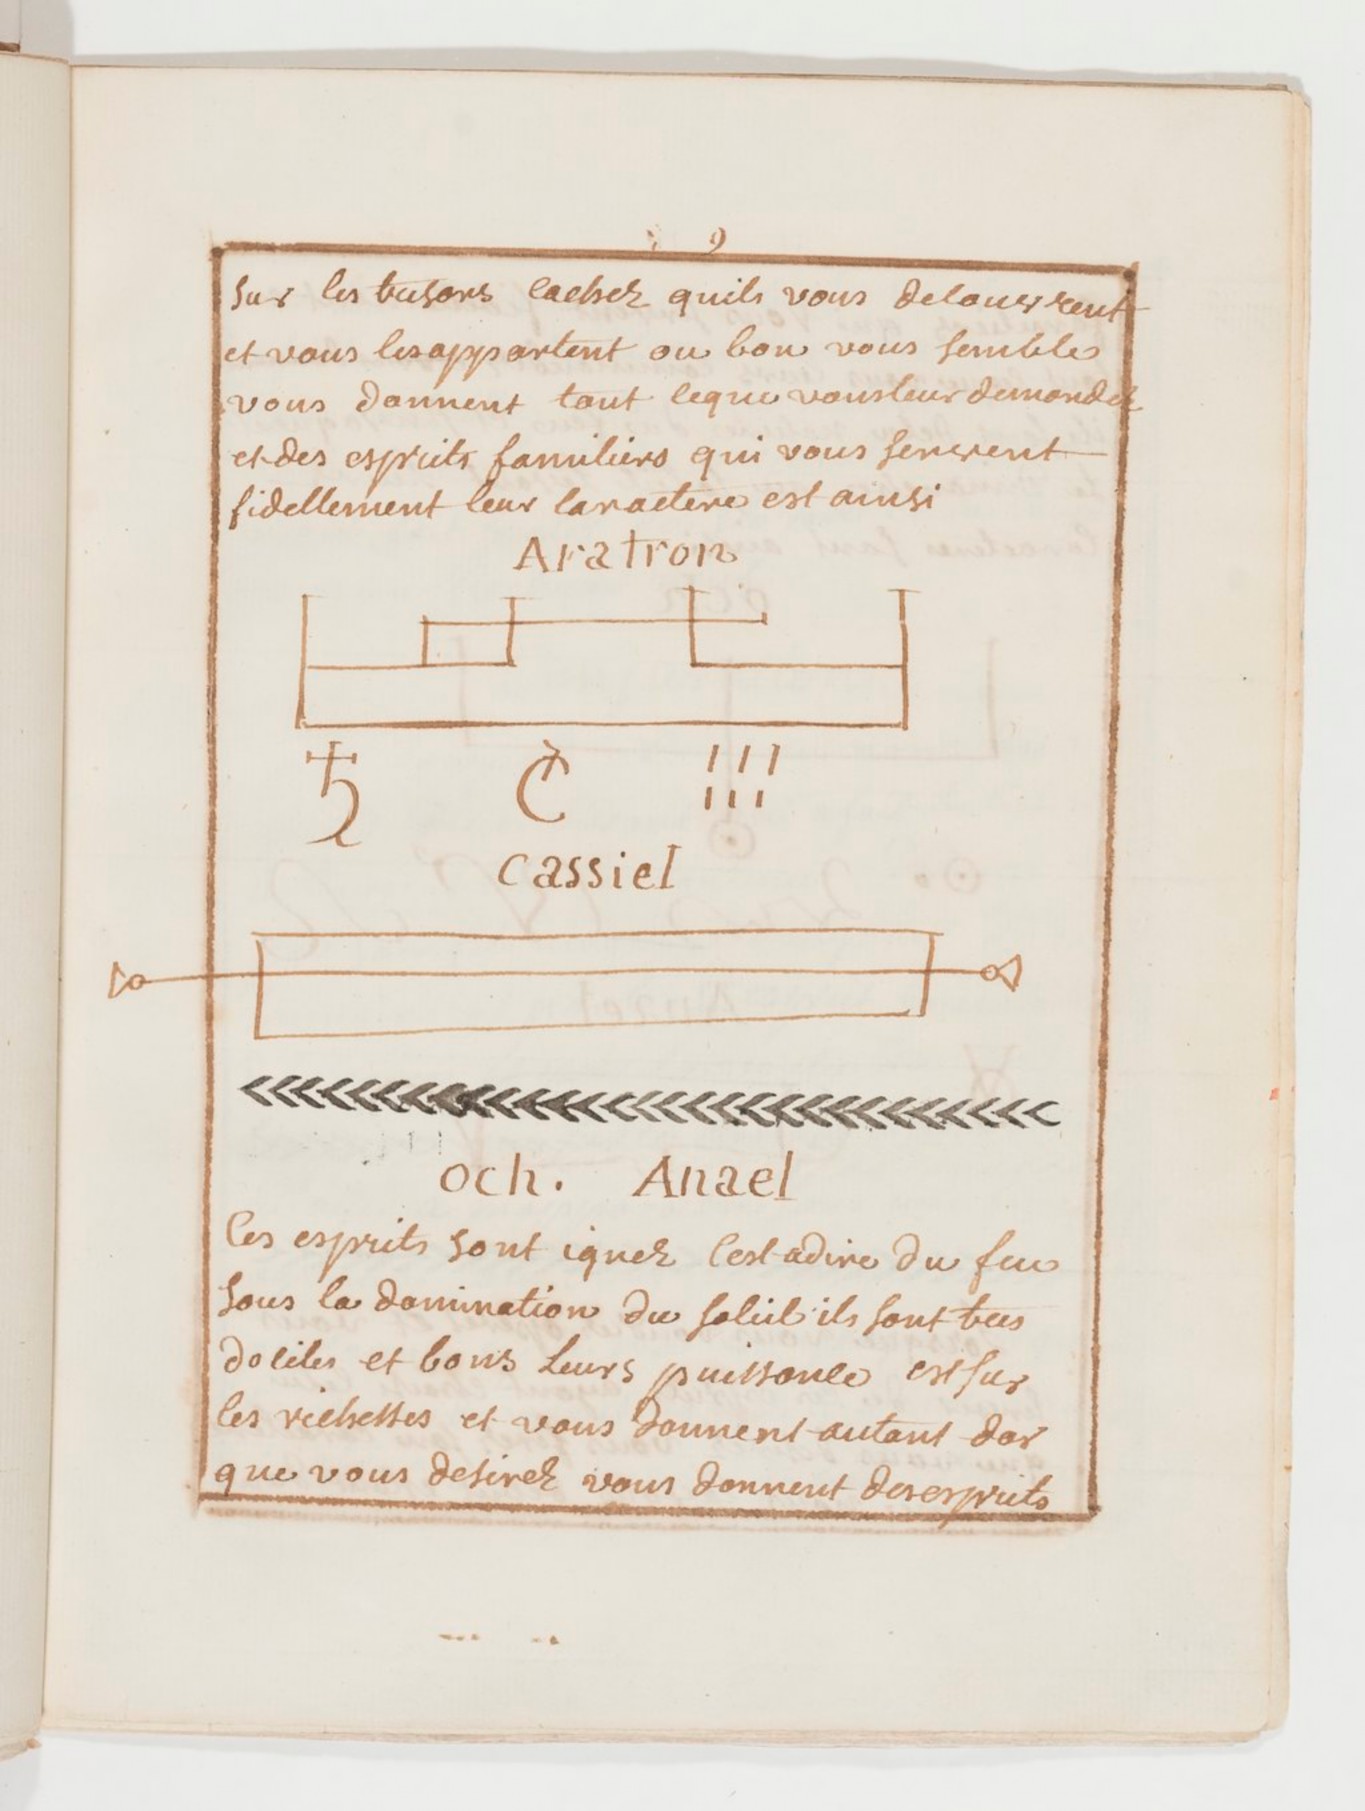 9
sur les tresors cachez quils vous decouvrent
et vous lesapportent ou bon vous semble
vous donnent tout ceque vousleur demandez
et des esprits familiers qui vous servent
fidellement leur caractere est ainsi
Aratron
♄
cassiel
och. Anael
Ces esprits sont ignez cest adire du feu
sous la domination du soleil ils sont tres
dociles et bons Leurs puissance est sur
les richesses et vous donnent autant dor
que vous desirez vous donnent des esprits